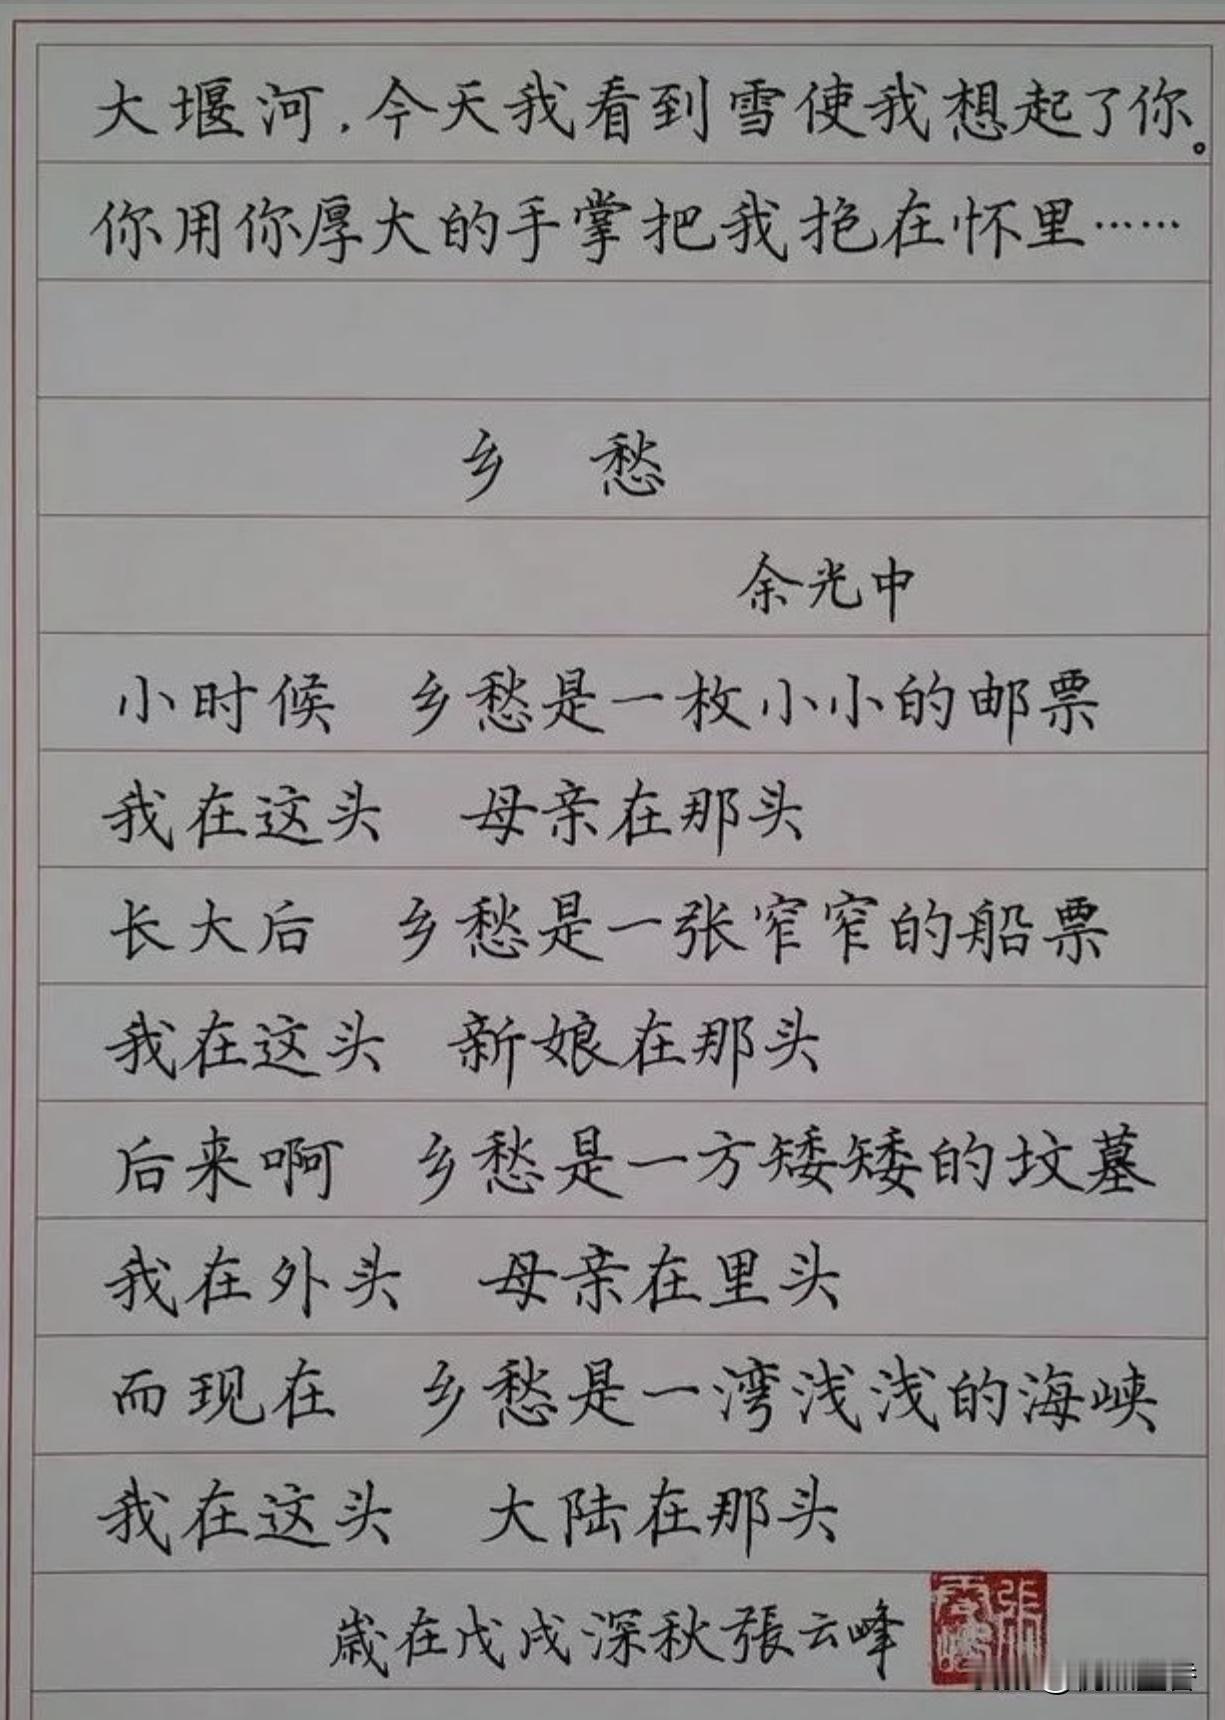 大堰河，今天我看到雪使我想起了你。
你用你厚大的手掌把我抱在怀里……
乡 愁
余光中
小时候 乡愁是一枚小小的邮票
我在这头 母亲在那头
长大后 乡愁是一张窄窄的船票
我在这头 新娘在那头
后来啊 乡愁是一方矮矮的坟墓
我在外头 母亲在里头
而现在 乡愁是一湾浅浅的海峡
我在这头 大陆在那头
歲在戊戌深秋張云峰